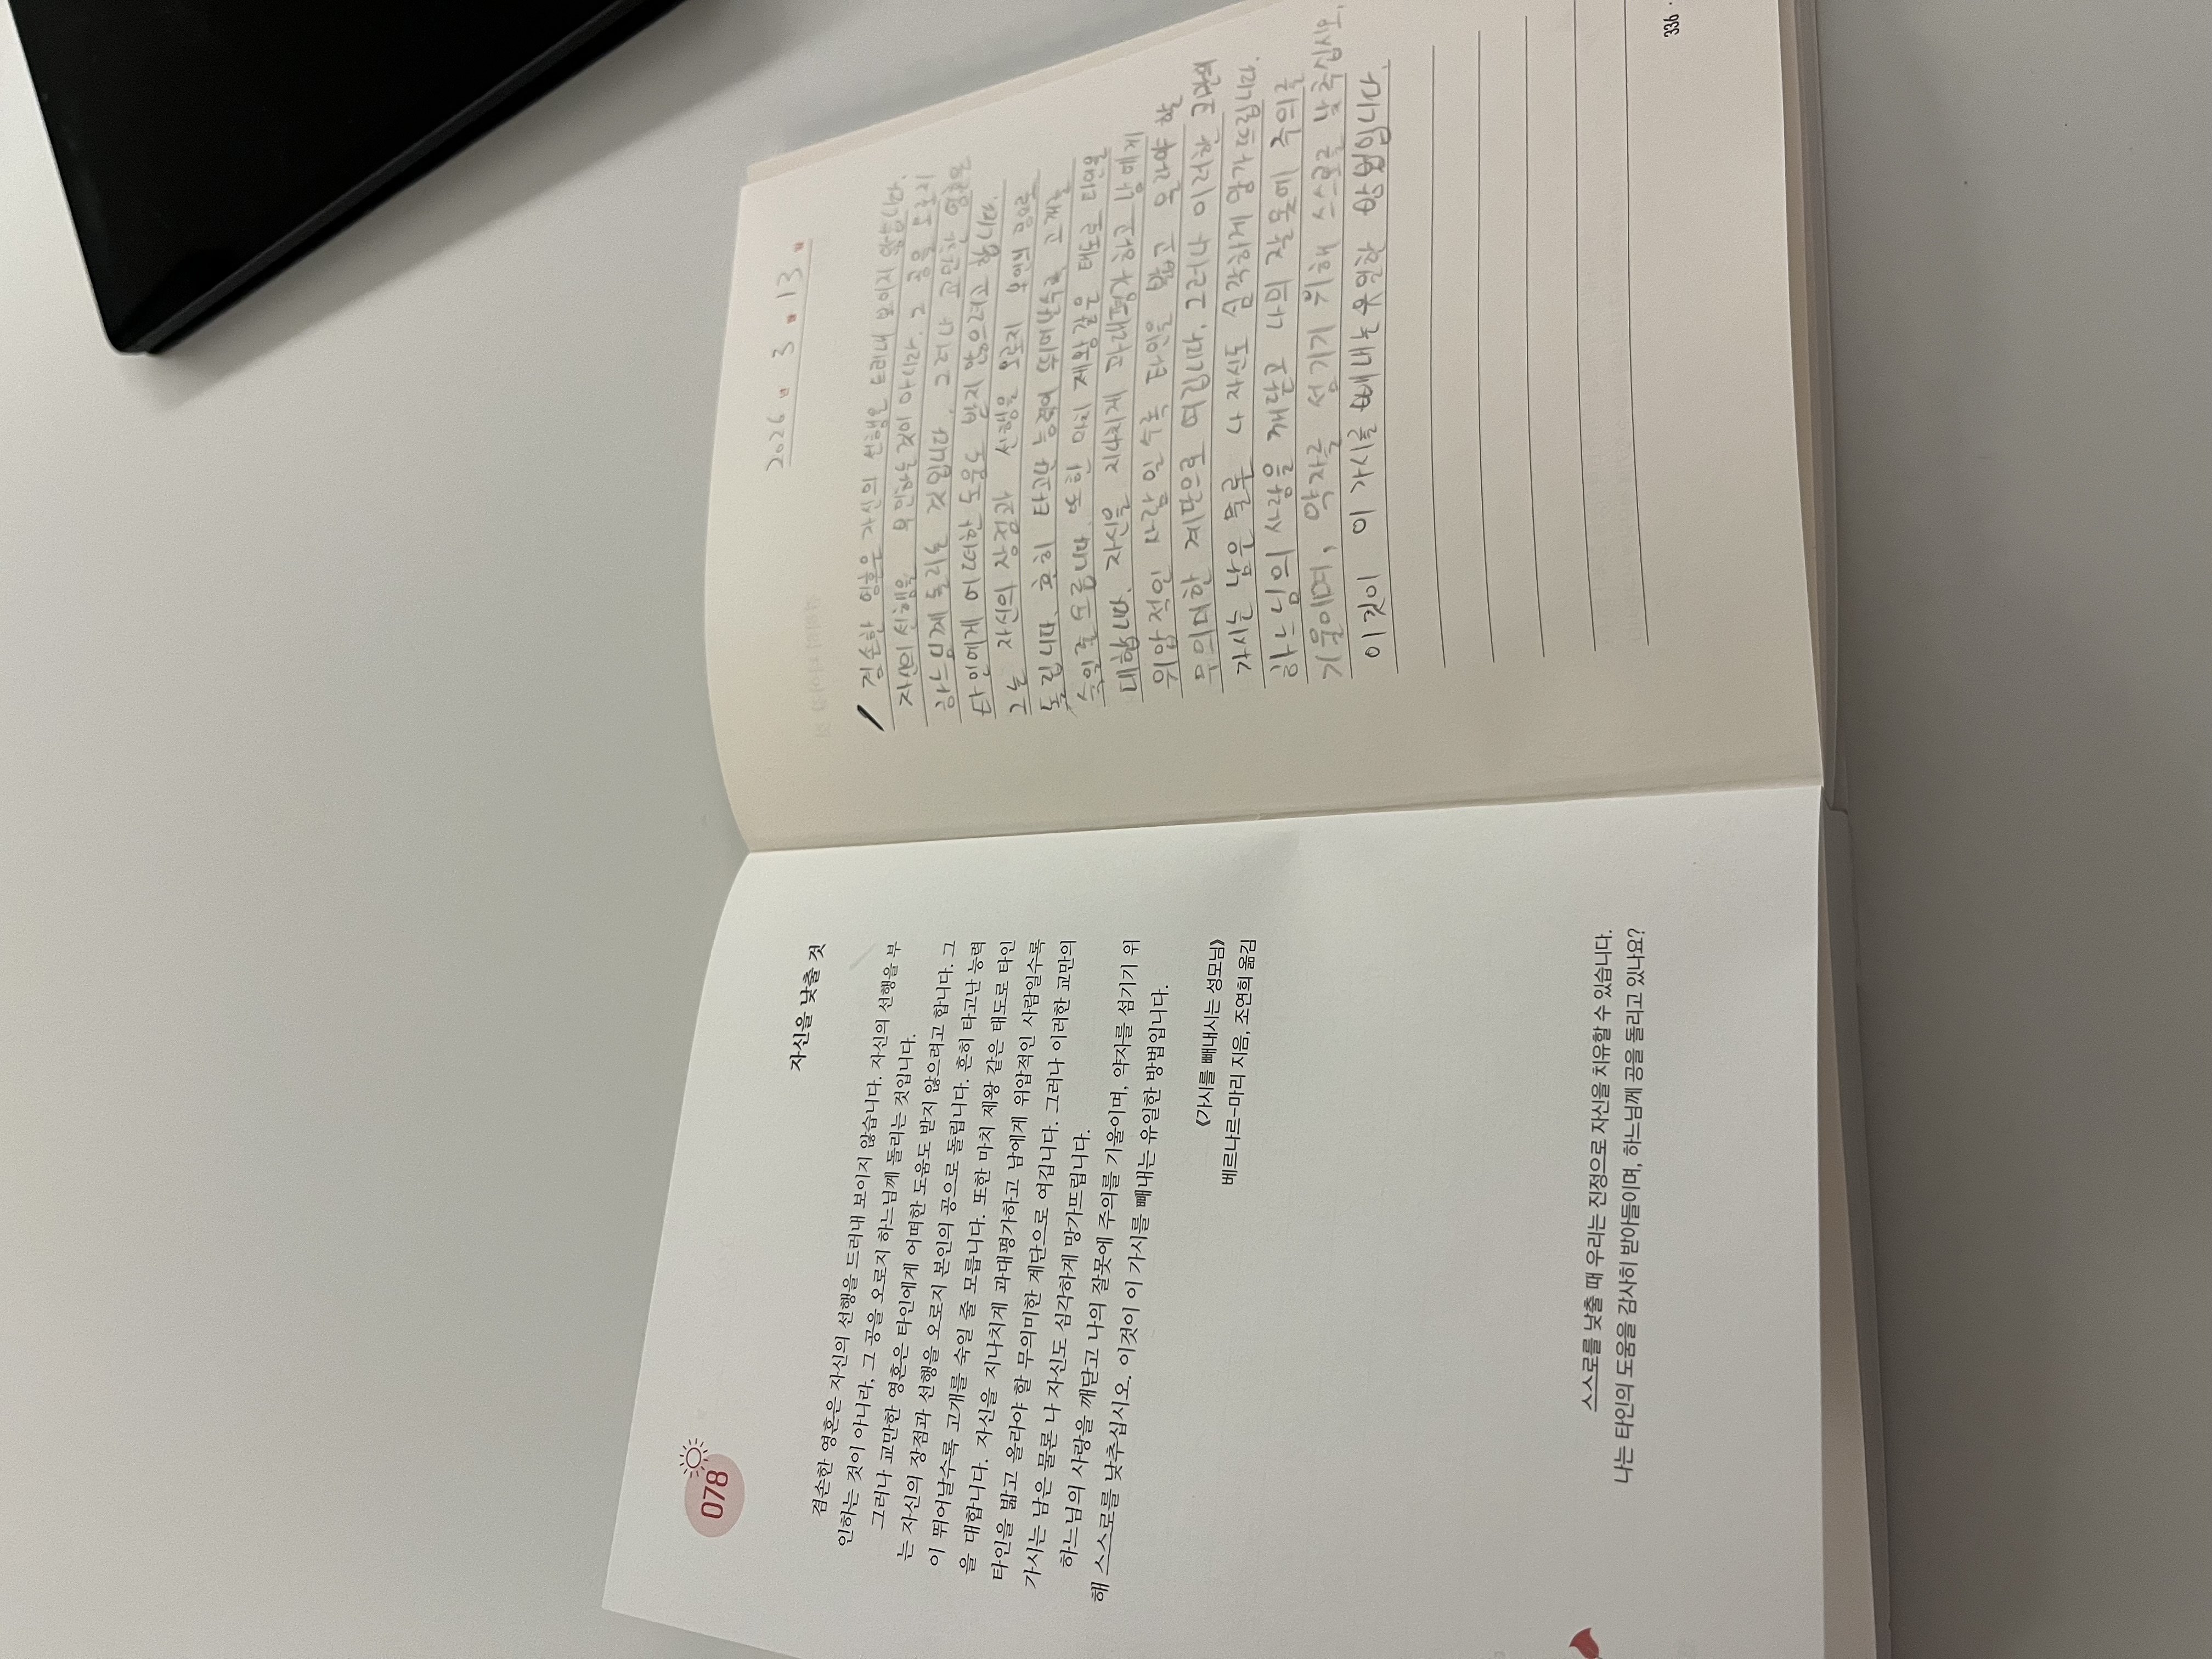 078
자신을 낮출 것
겸손한 영혼은 자신의 선행을 드러내 보이지 않습니다. 자신의 선행을 부
인하는 것이 아니라, 그 공을 오로지 하느님께 돌리는 것입니다.
그러나 교만한 영혼은 타인에게 어떠한 도움도 받지 않으려고 합니다. 그
는 자신의 장점과 선행을 오로지 본인의 공으로 돌립니다. 흔히 타고난 능력
이 뛰어날수록 고개를 숙일 줄 모릅니다. 또한 마치 제왕 같은 태도로 타인
을 대합니다. 자신을 지나치게 과대평가하고 남에게 위압적인 사람일수록
타인을 밟고 올라야 할 무의미한 계단으로 여깁니다. 그러나 이러한 교만의
가시는 남은 물론 나 자신도 심각하게 망가뜨립니다.
하느님의 사랑을 깨닫고 나의 잘못에 주의를 기울이며, 약자를 섬기기 위
해 스스로를 낮추십시오. 이것이 이 가시를 빼내는 유일한 방법입니다.
《가시를 빼내시는 성모님》
베르나르-마리 지음, 조연희 옮김
스스로를 낮출 때 우리는 진정으로 자신을 치유할 수 있습니다.
나는 타인의 도움을 감사히 받아들이며, 하느님께 공을 돌리고 있나요?
2026 3 13
겸손한 영혼은 자신의 선행은 드러내 보이지 않습니다.
자신의 선행을 부인하는 것이 아니라, 그 공을 오로지
하느님께 돌리는 것입니다. 그러나 교만한 영혼은
타인에게 어떠한 도움도 받지 않으려고 합니다.
그는 자신의 장점과 선행을 오로지 본인의 공으로
돌립니다. 흔히 타고난 능력이 뛰어날수록 고개를
숙일 줄 모릅니다. 또한 마치 제왕 같은 태도로 타인을
대합니다. 자신을 지나치게 과대평가하고 남에게
위압적인 사람일수록 타인을 밟고 올라야 할
무의미한 계단으로 여깁니다. 그러나 이러한 교만의
가시는 남은 물론 나 자신도 심각하게 망가뜨립니다.
하느님의 사랑을 깨닫고 나의 잘못에 주의를
기울이며, 약자를 섬기기 위해 스스로를 낮추십시오.
이것이 이 가시를 빼내는 유일한 방법입니다.
336